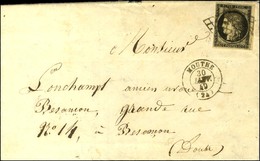 Monsieur
MOUTHE
30
49
(24)
Lonchampt ancien avoué
Besançon, grande rue
N° 14, à Besançon
(Doubs)